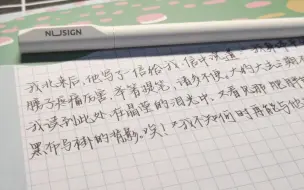 NUSIGN
我北来后,他写了一信给我,信中说道
膀子疼痛厉害,举箸提笔,诸多不便,大约大去之期不
我读到此处,在晶莹的泪光中,又看见那肥胖
黑布马褂的背影。唉!我不知何时再能与他